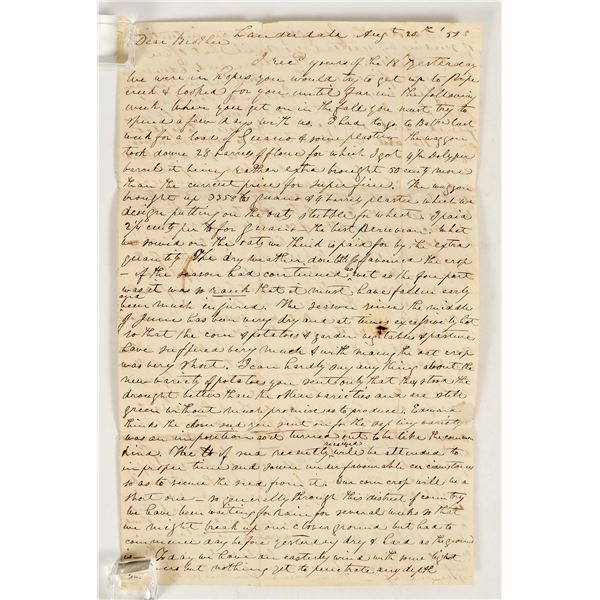 Lauderdale Augt 20th
Dear Brother
I recd yours of the 18th yesterday
We were in hopes you would try to get up to Pipe
creek & looked for you until far in the following
week. When you get on in the fall you must try to
spend a few days with us. I had to go to Balto last
week for a load of Guano & some plaster the waggon
took down 28 barrels flour for which I got dols per
barrel it being rather extra brought 50 cents more
than the current price for superfine. The waggon
brought up 3358 lbs guano & 4 barrels plaster which we
design putting on the oat stubble for wheat. I paid
2¼ cents per lb for Guano the best Peruvian. What
we sowed on the oats we think is paid for by the extra
quantity. The dry weather doubtless favoured the crop
of the season had continued wet as the fore part
was it was so rank that it must have fallen early
and been much injured. The season since the middle
of June has been very dry and at times excessively hot
so that the corn & potatoes & garden vegetables & pasture
have suffered very much & with many the oat crop
was very short. I can hardly say any thing about the
new variety of potatoes you sent only that they stood the
drought better than the other varieties and are still
green without much promise as to produce. Edward
thinks the clover seed you sent on for the variety
was an imposition as it turned out to be like the common
kind. The of seed recently received will be attended to
in proper time and sown under favourable circumstances
so as to secure the seed from it. Our corn crop will be a
short one - so generally through this district of country
we have been waiting for rain for several weeks so that
we might break up our clover ground but had to
commence day before yesterday dry & hard as the ground
is. Today we have an easterly wind with some light
but nothing yet to penetrate any depth